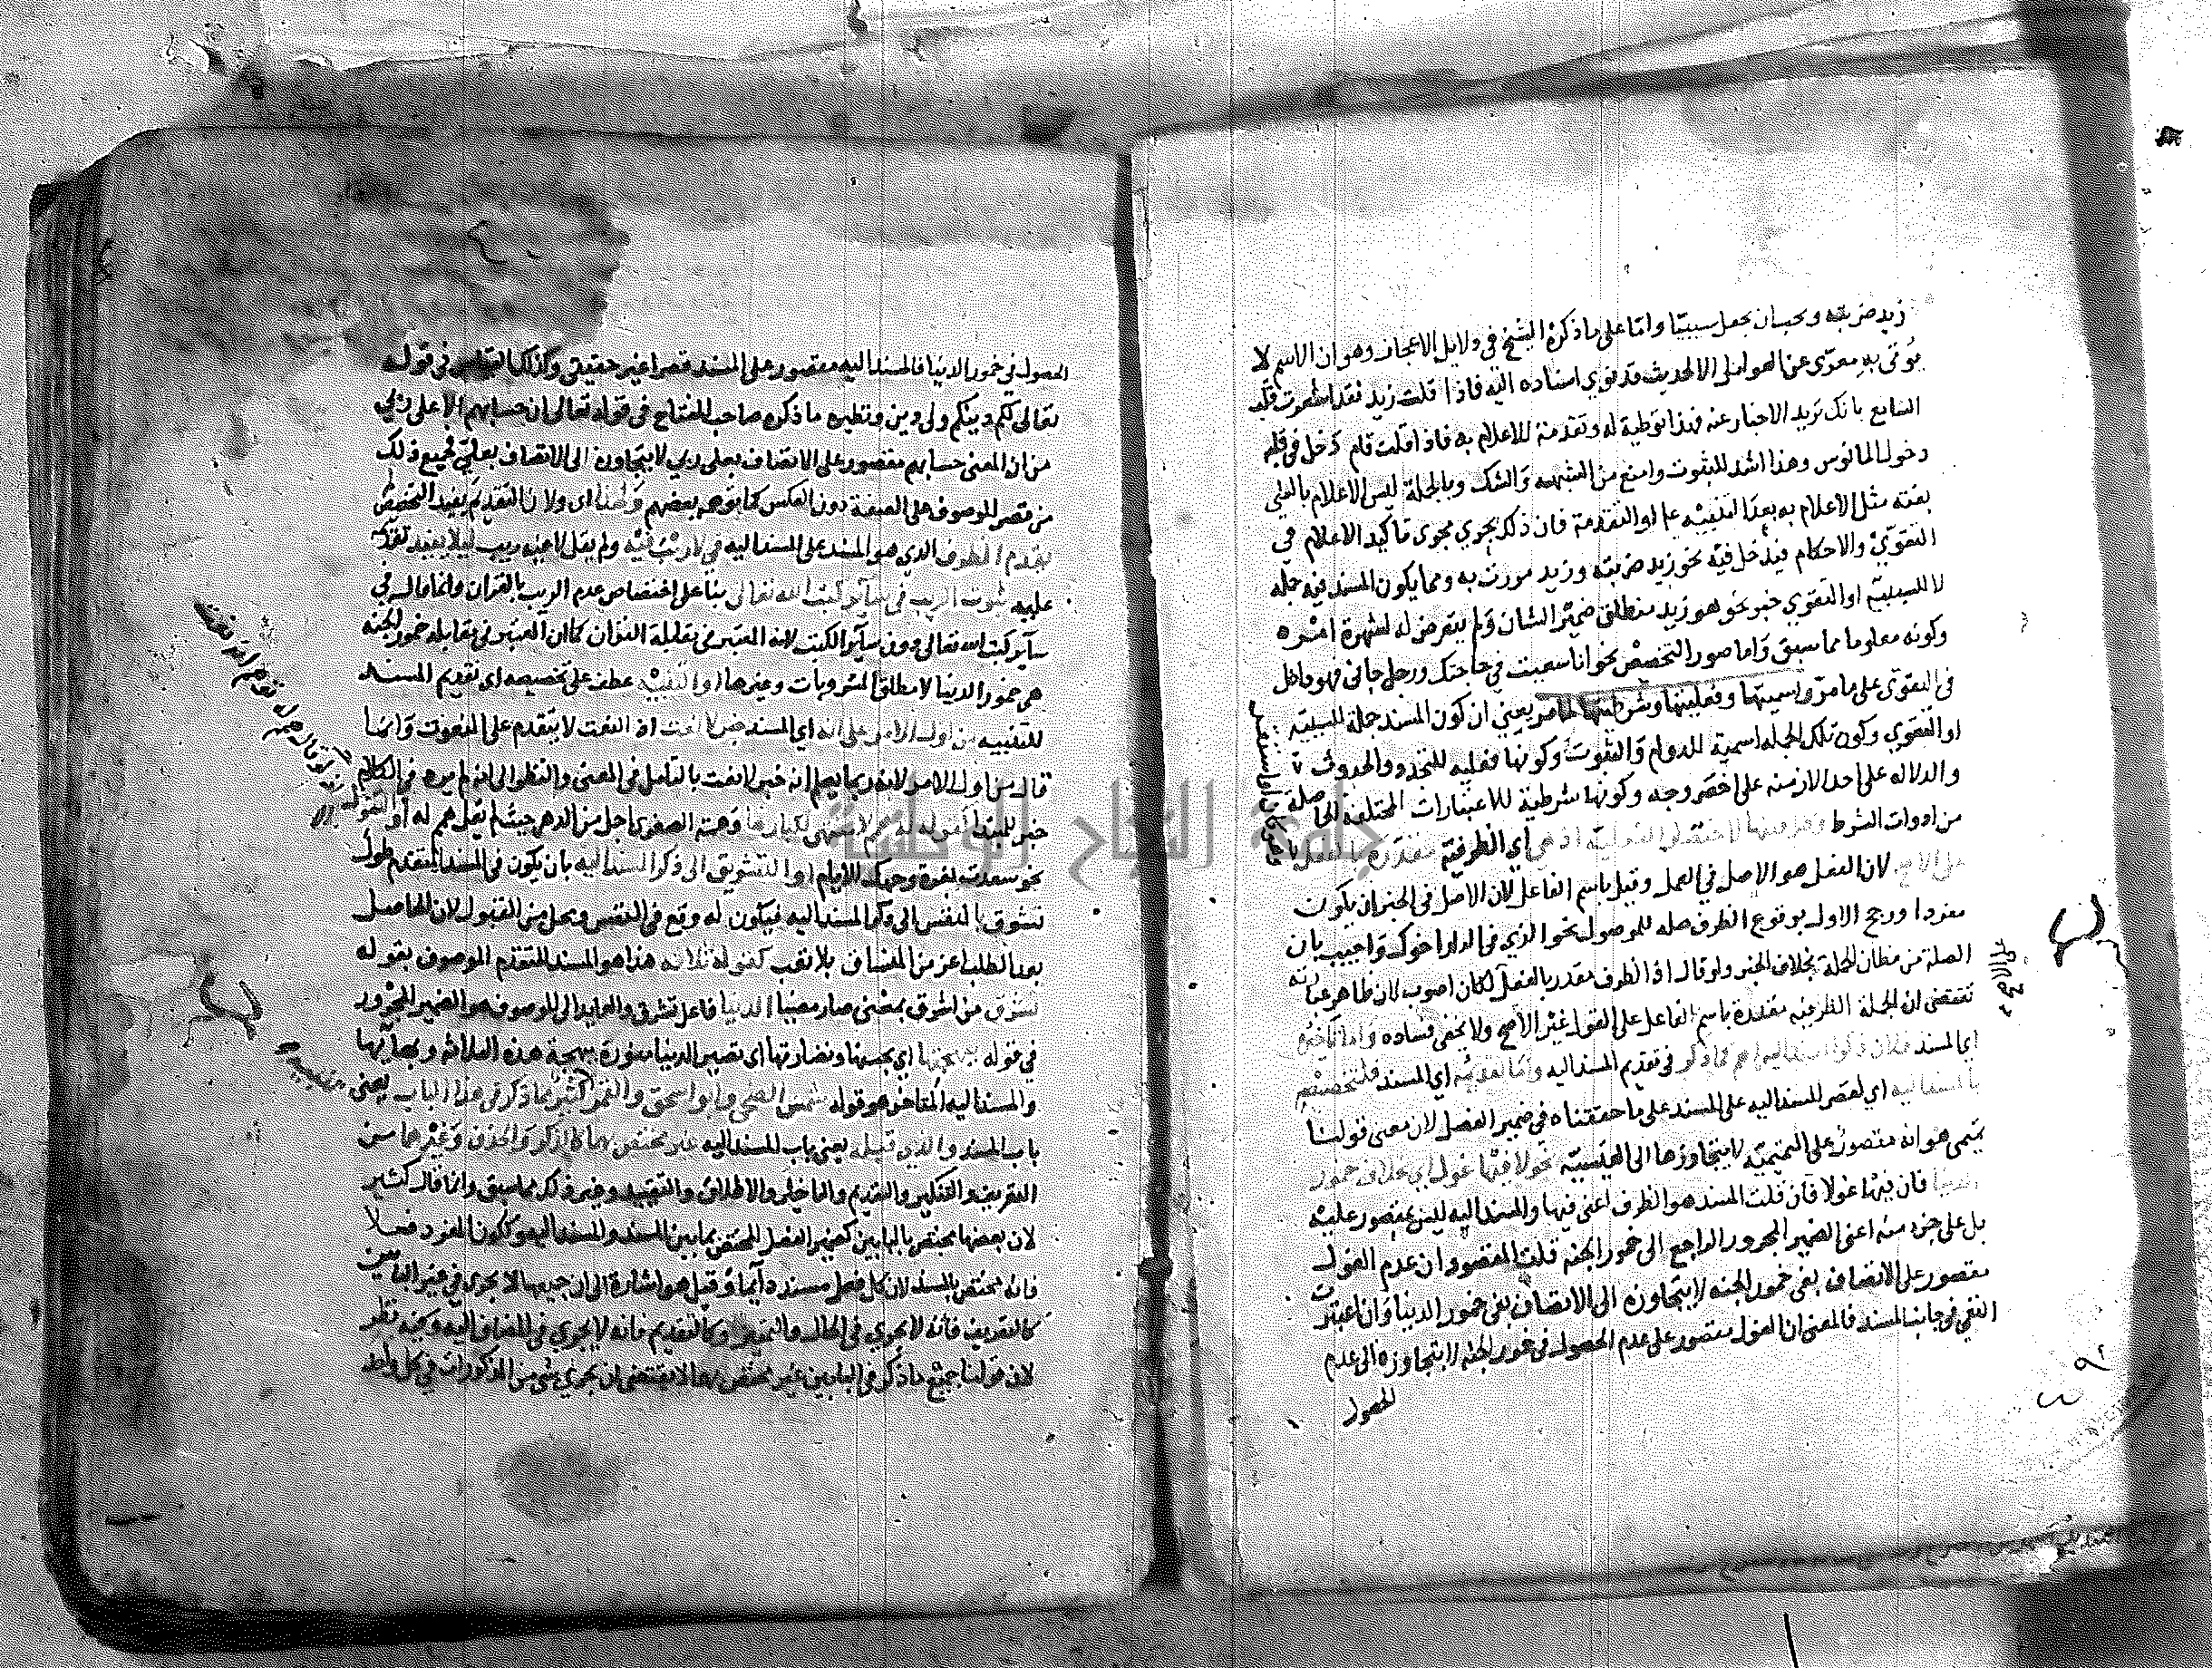 زيد ضربته ويجب ان يجعل سببيا واما على ما ذكره الشيخ في دلايل الاعجاز وهو ان الاسم لا
يؤتى به معرى عن العوامل الا لحديث قد نوي اسناده اليه فاذا قلت زيد فقد اشعرت قلب
السامع بانك تريد الاخبار عنه فهذا توطية له وتقدمة للاعلام به فاذا قلت قام دخل في قلبه
دخول المانوس وهذا اشد للثبوت وامنع من الشبهه والشك وبالجملة ليس الاعلام بالشي
بغته مثل الاعلام به بعد التنبيه عليه والتقدمة فان ذلك يجري مجرى تاكيد الاعلام في
التقوي والاحكام فيدخل فيه نحو زيد ضربته وزيد مررت به ومما يكون المسند فيه جمله
لا للسببية او التقوي خبر نحو هو زيد منطلق ضمير الشان ولم يتعرض له لشهرة امره
وكونه معلوما مما سبق واما صور التخصيص نحو انا سعيت في حاجتك ورجل جاني فهو داخل
في التقوى على ما مر واسميتها وفعليتها وشرطيتها لما مر يعني ان كون المسند جملة للسببيه
او التقوي وكون تلك الجمله اسمية للدوام والثبوت وكونها فعليه للتجدد والحدوث
والدلاله على احد الازمنه على اخصر وجه وكونها شرطية للاعتبارات المختلفة الحاصلة
من ادوات الشرط وظرفيتها لاختصار الفعلية اذ هي اي الظرفية مقدرة بالفعل
على الاصح لان الفعل هو الاصل في العمل وقيل باسم الفاعل لان الاصل في الخبر ان يكون
مفردا ورجح الاول بوقوع الظرف صله للموصول نحو الذي في الدار اخوك واجيب بان
الصلة من مظان الجملة بخلاف الخبر ولو قال اذ الظرف مقدر بالفعل لكان اصوب لان ظاهر عبارته
تقتضي ان الجملة الظرفيه مقدرة باسم الفاعل على القول غير الاصح ولا يخفى فساده واما تاخيره
اي المسند فلان ذكر المسند اليه اهم كما ذكر في تقديم المسند اليه واما تقديمه اي المسند فلتخصيصه
بالمسند اليه اي لقصر المسند اليه على المسند على ما حققناه في ضمير الفصل لان معنى قولنا
تميمي هو انه مقصور على التميمية لا يتجاوزها الى القيسية نحو لا فيها غول اي بخلاف خمور
الدنيا فان فيها غولا فان قلت المسند هو الظرف اعني فيها والمسند اليه ليس بمقصور عليه
بل على جزء منه اعني الضمير المجرور الراجع الى خمور الجنه قلت المقصود ان عدم الغول
مقصور على الاتصاف بفي خمور الجنه لا يتجاوزه الى الاتصاف بفي خمور الدنيا وان اعتبرت
النفي في جانب المسند فالمعنى ان الغول مقصور على عدم الحصول في خمور الجنه لا يتجاوزه الى عدم
الحصول
الحصول في خمور الدنيا فالمسند اليه مقصور على المسند قصرا غير حقيقي وكذلك القياس في قوله
تعالى لكم دينكم ولي دين ونظيره ما ذكره صاحب المفتاح في قوله تعالى ان حسابهم الا على ربي
من ان المعنى حسابهم مقصور على الاتصاف بعلى ربي لا يتجاوزه الى الاتصاف بعلي فجميع ذلك
من قصر الموصوف على الصفة دون العكس كما توهمه بعضهم ولهذا اي ولان التقديم يفيد التخصيص
لم يقدم الظرف الذي هو المسند على المسند اليه في لا ريب فيه ولم يقل لا فيه ريب ليلا يفيد تقديمه
عليه ثبوت الريب في ساير كتب الله تعالى بناء على اختصاص عدم الريب بالقران وانما قال في
ساير كتب الله تعالى دون ساير الكتب لانه المعتبر في مقابلة القران كما ان المعتبر في مقابله خمور الجنه
هي خمور الدنيا لا مطلق المشروبات وغيرها او التنبيه عطف على تخصيصه اي تقديم المسند
للتنبيه من اول الامر على انه اي المسند خبر لا نعت اذ النعت لا يتقدم على المنعوت وانما
قال من اول الامر لانه ربما يعلم انه خبر لا نعت بالتامل في المعنى والنظر الى انه لم يرد في الكلام
خبر للمبتدا كقوله له همم لا منتهى لكبارها وهمته الصغرى اجل من الدهر حيث لم يقل همم له او التفاول
نحو سعدت بغرة وجهك الايام او التشويق الى ذكر المسند اليه بان يكون في المسند المتقدم طول
تشوق النفس الى ذكر المسند اليه فيكون له وقع في النفس ومحل من القبول لان الحاصل
بعد الطلب اعز من المنساق بلا تعب كقوله ثلاثه هذا هو المسند المتقدم الموصوف بقوله
تشرق من اشرق بمعنى صار مضيا الدنيا فاعل تشرق والعايد الى الموصوف هو الضمير المجرور
في قوله ببهجتها اي بحسنها ونضارتها اي تصير الدنيا منورة ببهجة هذه الثلاثه وبهايها
والمسند اليه المتاخر هو قوله شمس الضحى وابو اسحق والقمر تنبيه كثير مما ذكر في هذا الباب يعني
باب المسند والذي قبله يعني باب المسند اليه غير مختص بهما كالذكر والحذف وغيرهما من
التعريف والتنكير والتقديم والتاخير والاطلاق والتقييد وغير ذلك مما سبق وانما قال كثير
لان بعضها مختص بالبابين كضمير الفصل المختص بما بين المسند والمسند اليه وككون المفرد فعلا
فانه مختص بالمسند لان كل فعل مسند دايما وقيل هو اشارة الى ان جميعها لا يجري في غير البابين
كالتعريف فانه لا يجري في الحال والتمييز وكالتقديم فانه لا يجري في المضاف اليه وفيه نظر
لان قولنا جميع ما ذكر في البابين غير مختص بهما لا يقتضي ان يجري شي من المذكورات في كل واحد
جامعة النجاح الوطنية